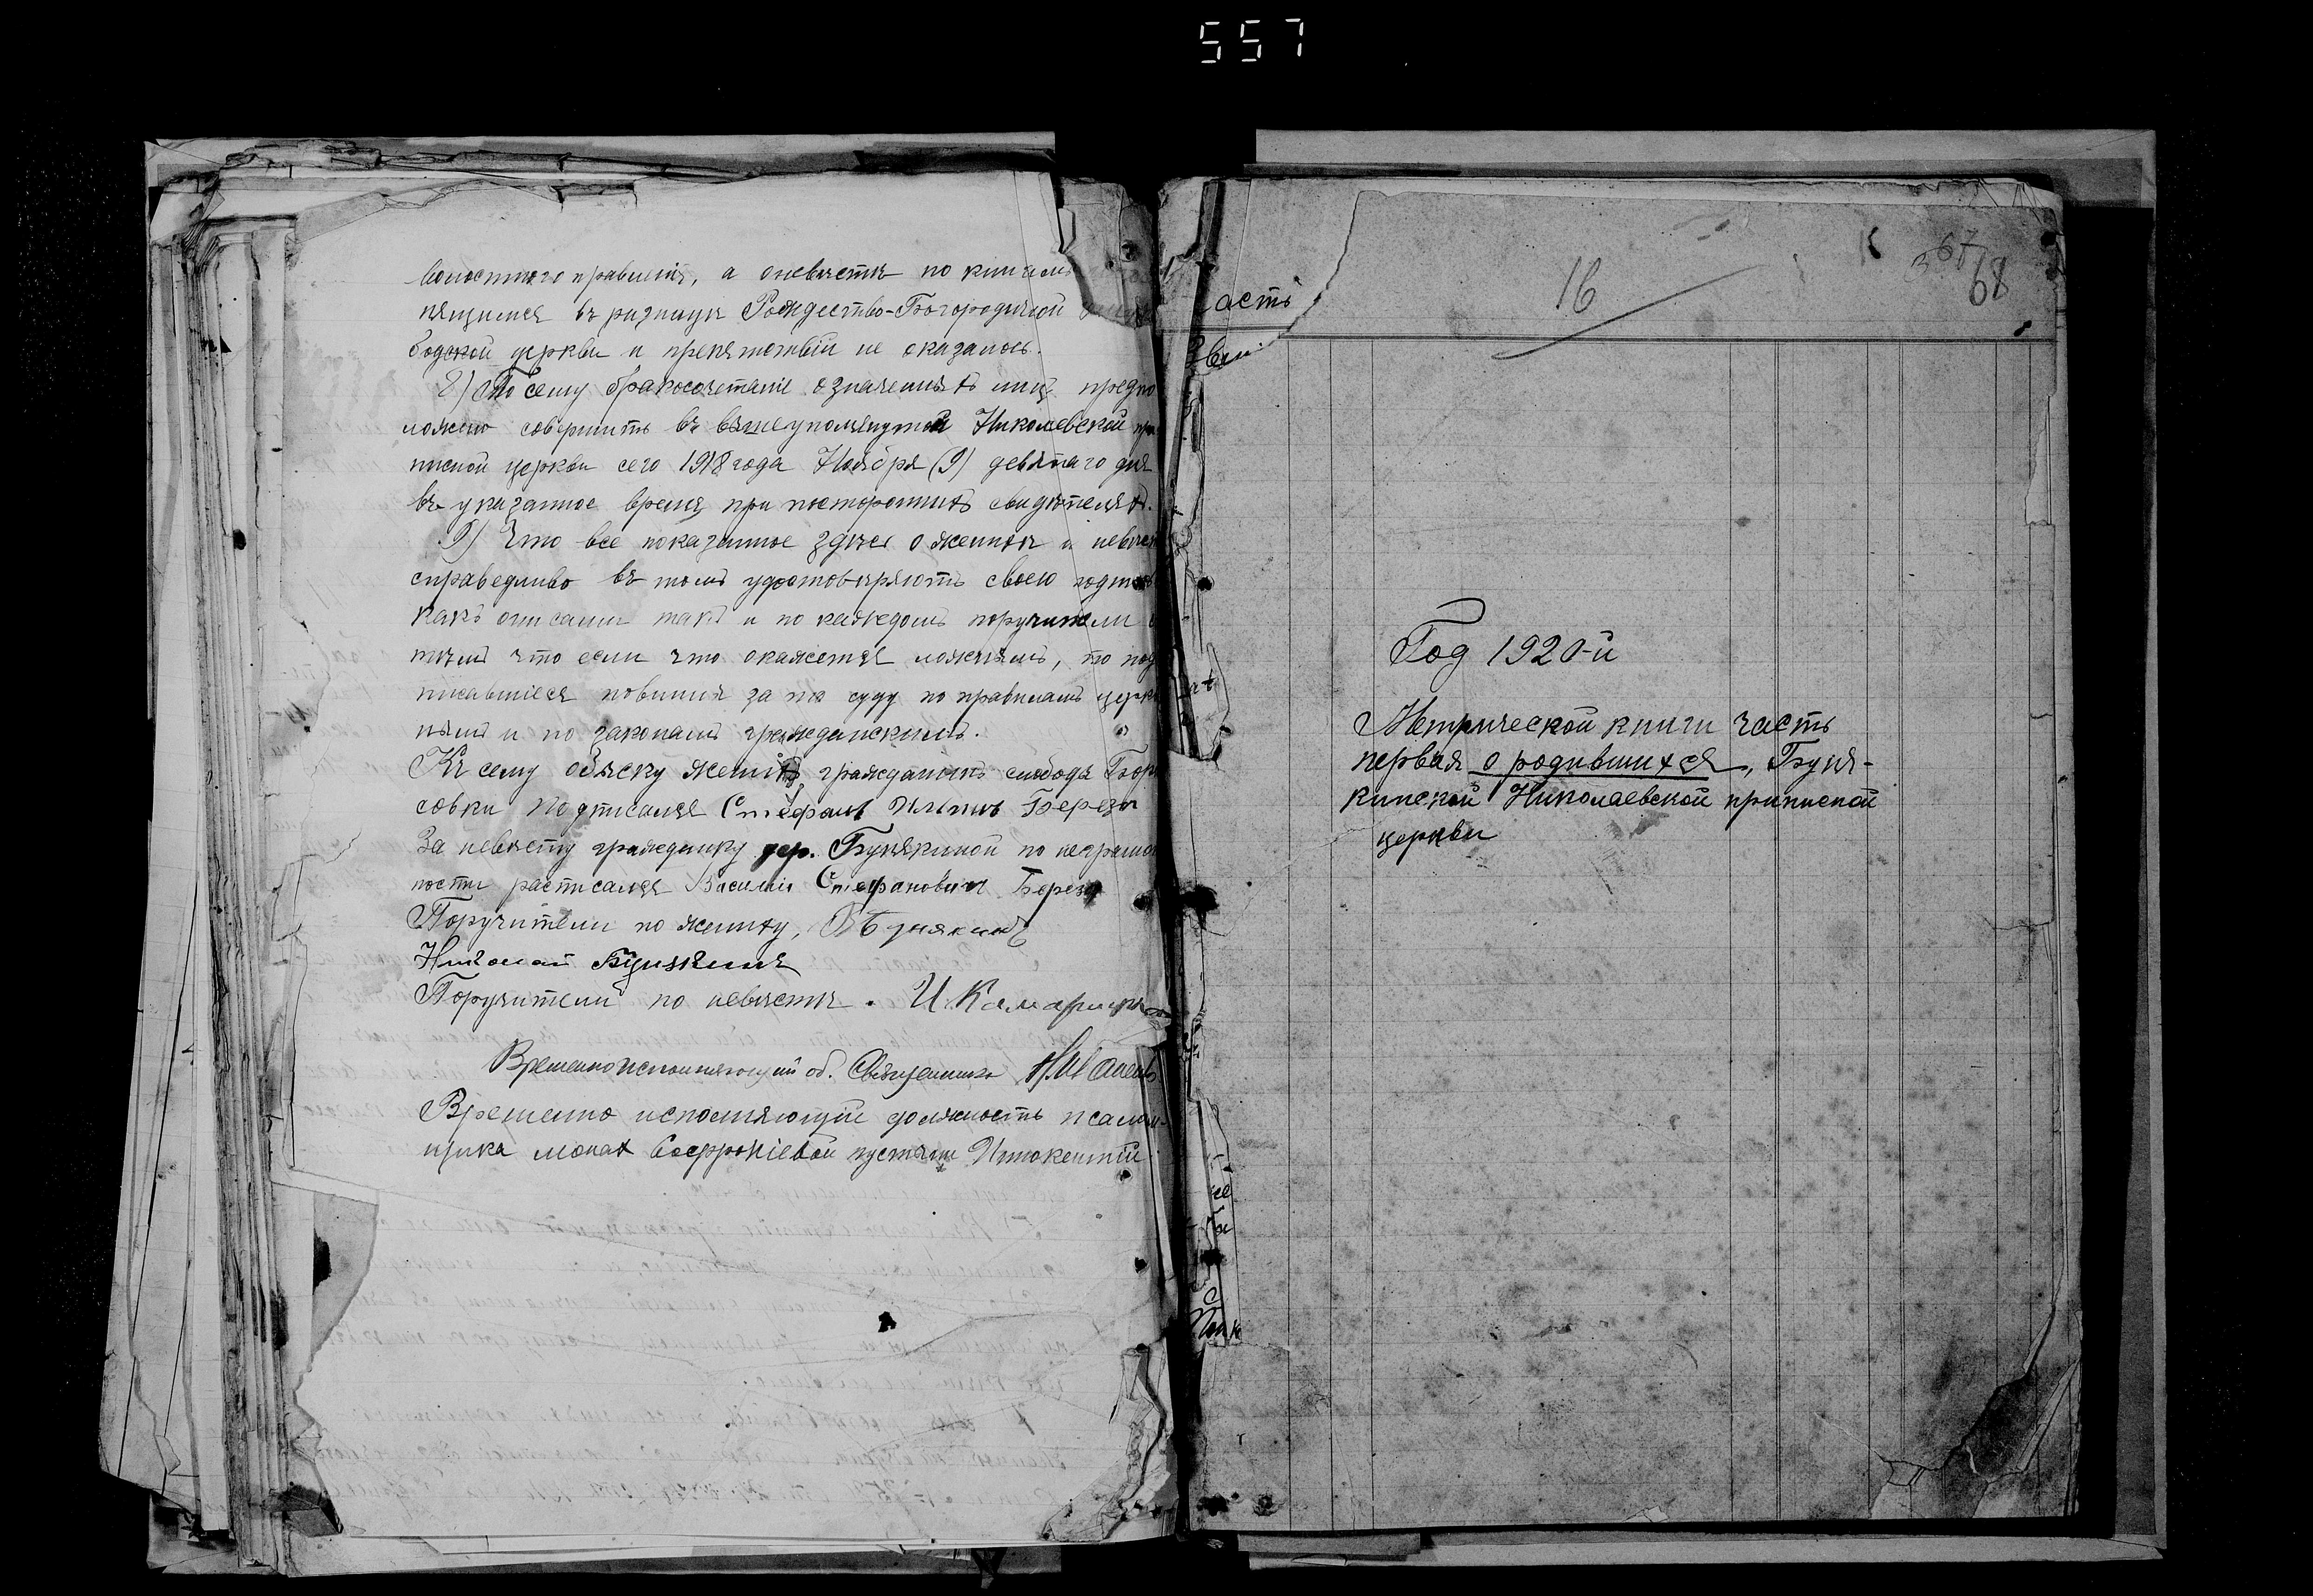 557
волостного правленія, а о невѣстѣ по книгамъ
нящимся въ ризницѣ Рождество-Богородичной
бодской церкви и препятствій не оказалось.
8) По сему бракосочетаніе означенныхъ лицъ предпо
ложено совершить въ вышеупомянутой Николаевской при
писной церкви сего 1918 года Ноября (9) девятаго дня
въ указанное время при постороннихъ свидѣтеляхъ.
9) Что все показанное здѣсь о женихѣ и невѣст
справедливо въ томъ удостовѣряютъ своею подпис
какъ они сами такъ и по каждомъ поручители
тѣмъ что если что окажется ложнымъ, то под
писавшіеся повинны за то суду по правиламъ церк
нымъ и по законамъ гражданскимъ.
Къ сему обыску женихъ гражданинъ слободы Бор
совки подписался Стефанъ Ильинъ Береза
За невѣсту гражданку дер. Бунякиной по неграмот
ности расписался Василій Стефановичъ Береза
Поручители по жениху, Бунякинъ
Николай Бунякинъ
Поручители по невѣстѣ. И. Камари
Временно исполняющій об. Священника
Временно исполняющій должность псалом-
щика монах Софроніевой пустыни Иннокентій
асть
16
367
68
Год 1920-й
Метрической книги часть
первая о родившихся, Буня-
кинской Николаевской приписной
церкви